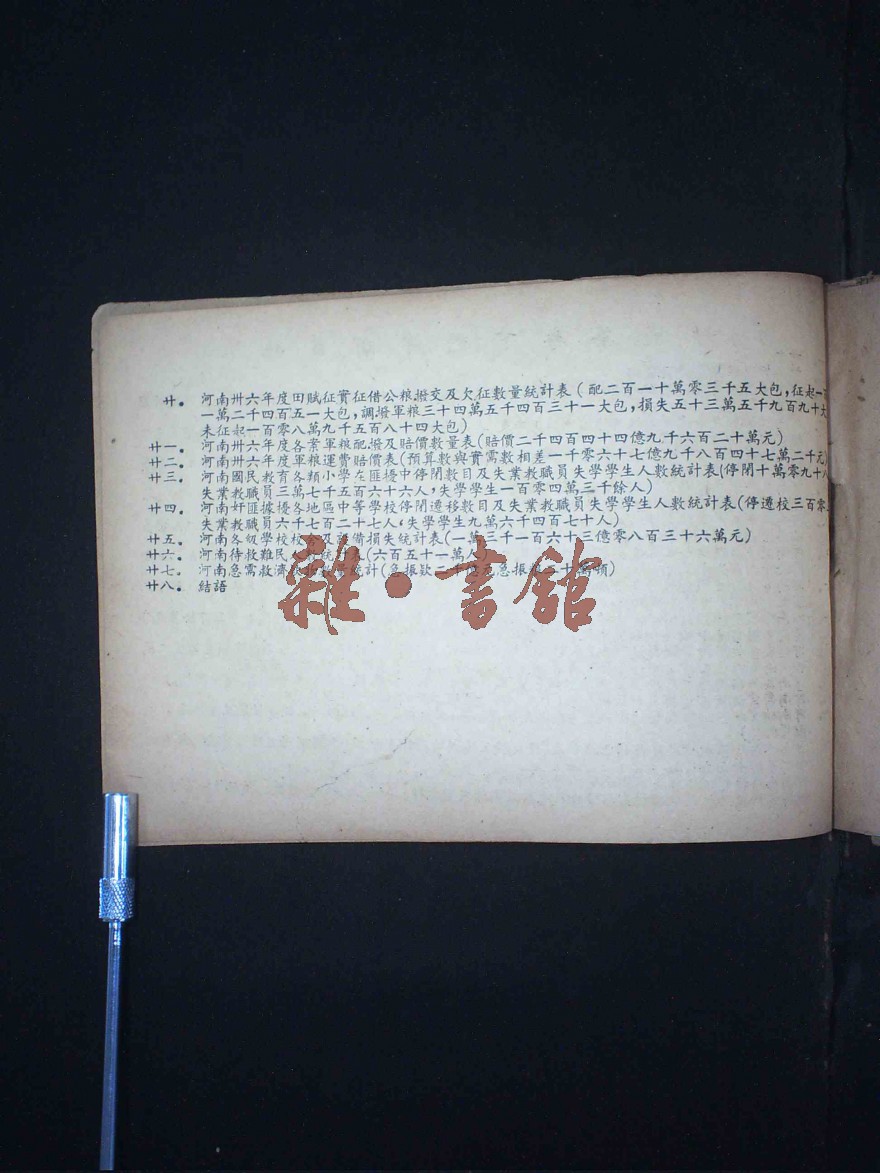 廿. 河南卅六年度田賦征實征借公粮撥交及欠征數量統計表(配二百一十萬零三千五大包,征起一百
一萬二千四百五一大包,調撥軍粮三十四萬五千四百三十一大包,損失五十三萬五千九百九十大
未征起一百零八萬九千五百八十四大包)
廿一. 河南卅六年度各案軍粮配撥及賠價數量表(賠價二千四百四十四億九千六百二十萬元)
廿二. 河南卅六年度軍粮運費賠價表(預算數與實需數相差一千零六十七億九千八百四十七萬二千元)
廿三. 河南國民教育各類小學在匪擾中停閉數目及失業教職員失學學生人數統計表(停閉十萬零九十八
失業教職員三萬七千五百六十六人,失學學生一百零四萬三千餘人)
廿四. 河南奸匪據擾各地區中等學校停閉遷移數目及失業教職員失學學生人數統計表(停遷校三百零
失業教職員六千七百二十七人,失學學生九萬六千四百七十人)
廿五. 河南各級學校校及備損失統計表(一萬三千一百六十三億零八百三十六萬元)
廿六. 河南待救難民統計表(六百五十一萬人
廿七. 河南急需救濟統計(急振欵二千元急振十萬頓)
廿八. 結語
雜·書館